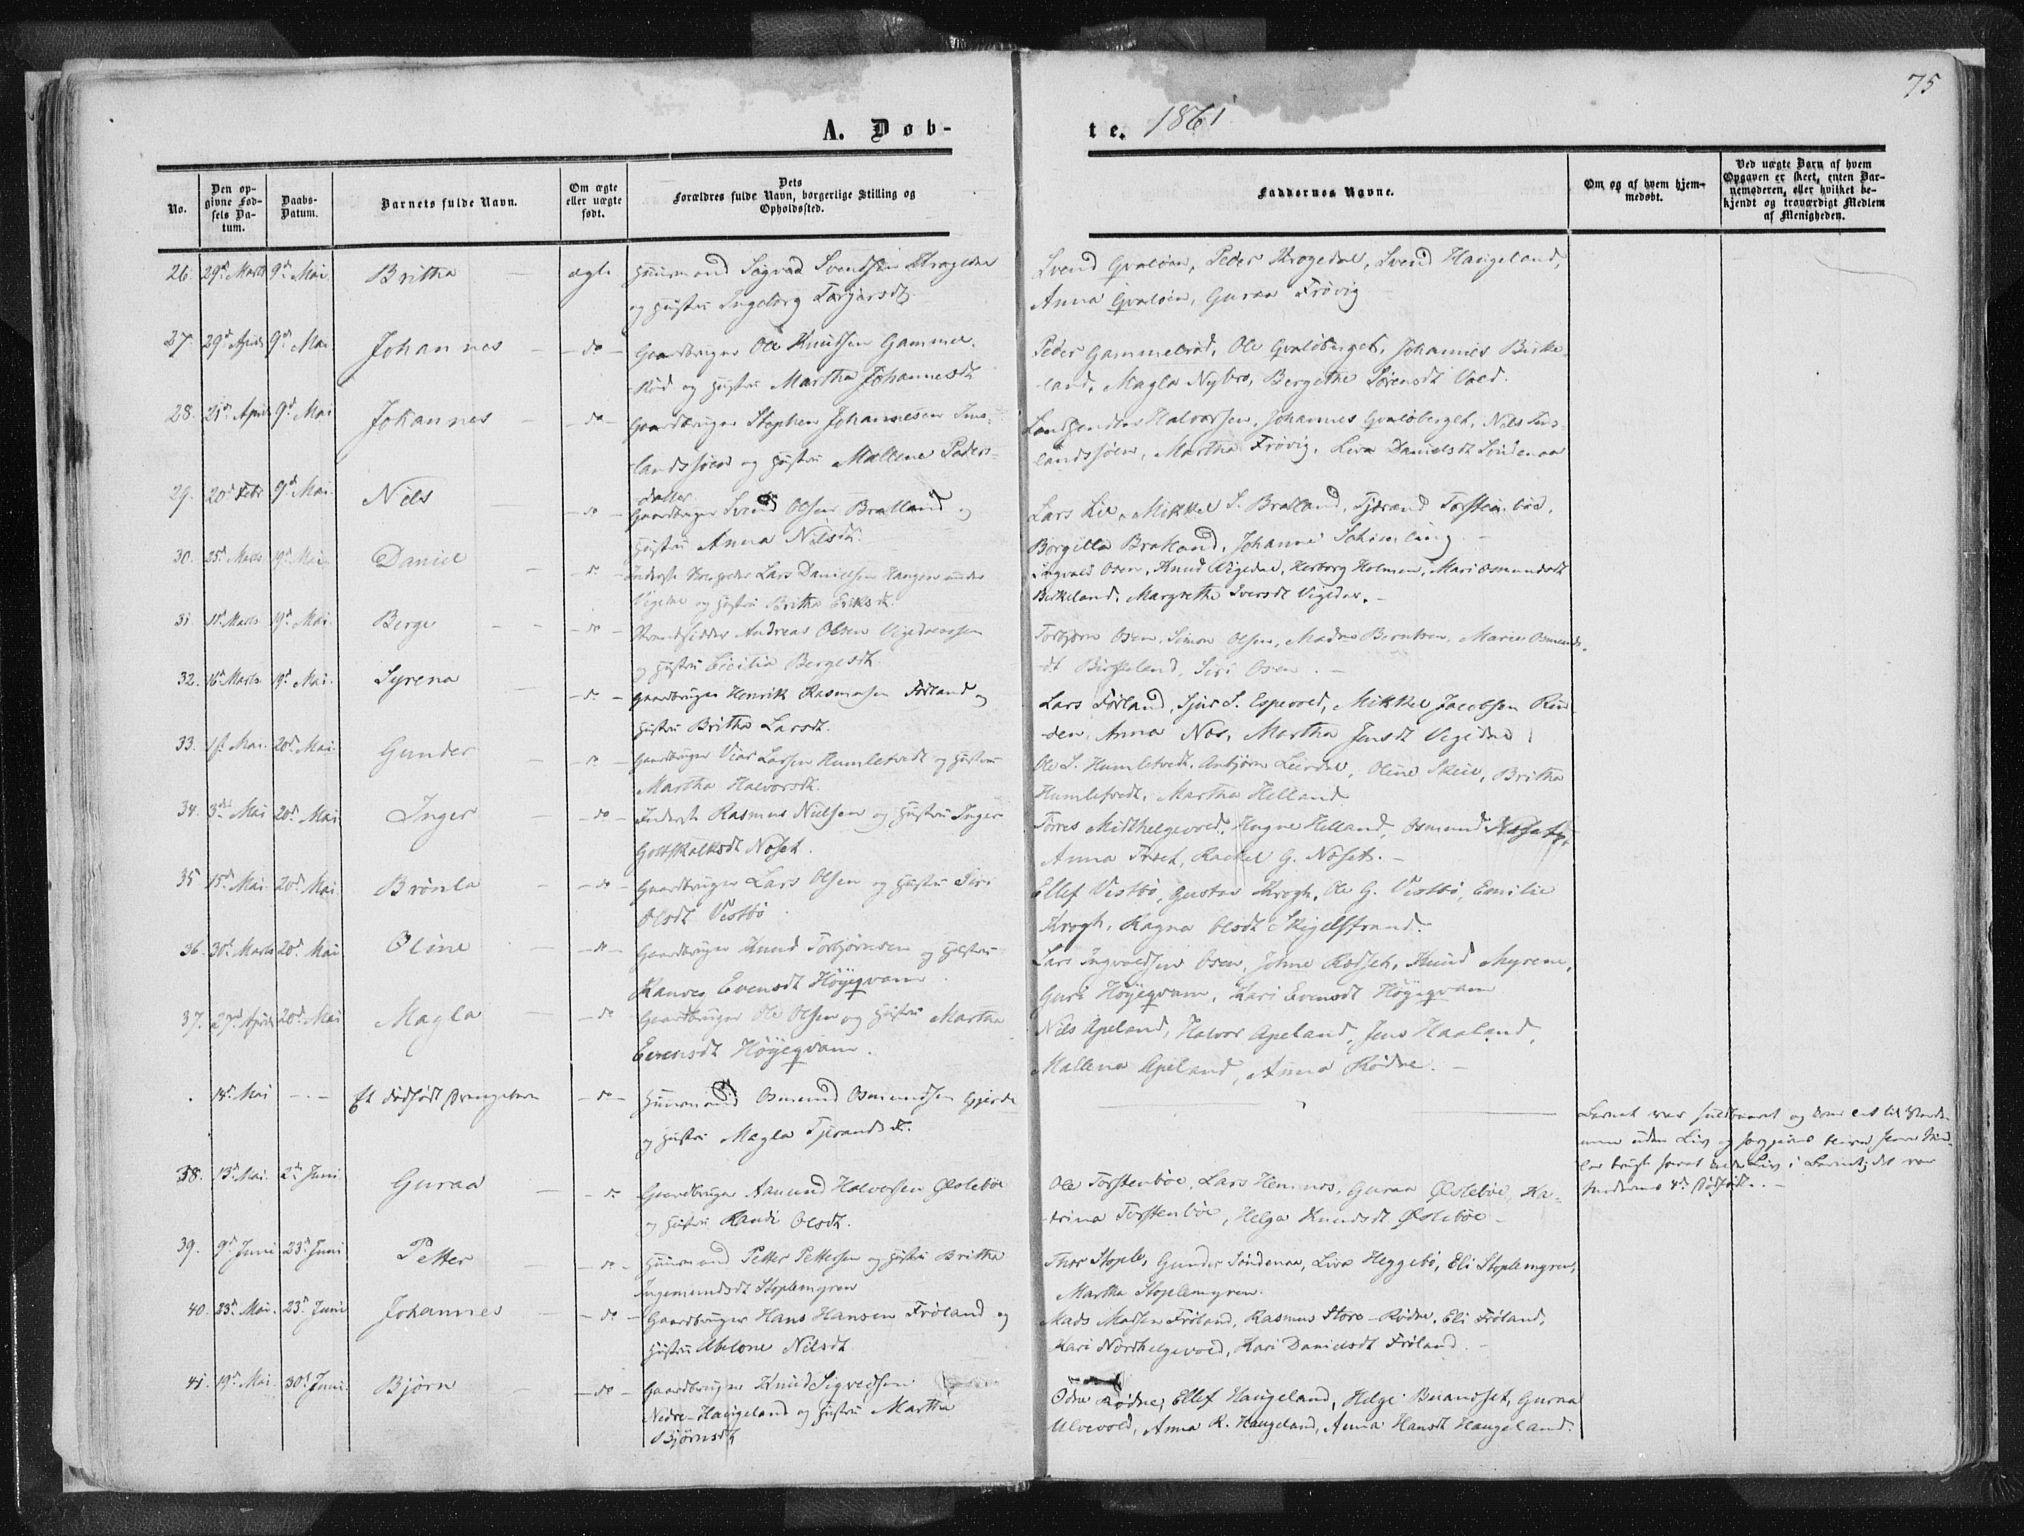 75
A. Døb-
te. 1861
No.
Den op-
givne Fød-
sels Da-
tum.
Daabs-
Datum.
Barnets fulde Navn.
Om ægte
eller uægte
født.
Dets
Forældres fulde Navn, borgerlige Stilling og
Opholdssted.
Faddernes Navne.
Om og af hvem hjem-
medøbt.
Ved uægte Barn af hvem
Opgaven er skeet, enten Bar-
nemoderen, eller hvilket be-
kjendt og troværdigt Medlem
af Menigheden.
26. 29d Marts 9d Mai Britha ægte Huusmand Sigvad Svendsen
og Hustru Ingeborg Torgersdt.
Svend Qvaløen, Peder Krogedal, Svend Haugeland,
Anna Qvaløen, Guraa Frøvig
27. 29d April 9d Mai Johannes do Gaardbruger Ole Knudsen Gammel-
rød og Hustru Martha Johannesdt
Peder Gammelrød, Ole Qvaløberget, Johannes Birke-
land, Magla Nybro, Bergethe Sørensdt Vold.
28. 21d April 9d Mai Johannes do Gaardbruger Stephen Johannesen Ims-
landssjøen og Hustru Mallene Peders-
datter
Halvorsen, Johannes Qvaløberget, Nils Ims-
landssjøen, Martha Frøvig, Liva Danielsdt Søndenaa
29. 20d Febr 9d Mai Nils do Gaardbruger Svend Olsen Bratland og
Hustru Anna Nilsdt.
Lars Lie, Mikkel S. Bratland, Tjerand Torsteinbøe,
Borgilla Bratland, Johanne Schimling.
30. 25d Marts 19d Mai Daniel do Inderst Lars Danielsen Haugen under
Vigedal og Hustru Britha Eriksdt.
Ingvald Osen, Knud Vigedal, Herborg Holmen, Mari Osmundsdt
Birkeland, Margrethe Iversdt Vigedal.
31. 11d Marts 19d Mai Berge do Strandsidder Andreas Olsen Vigedalsosen
og Hustru Cicilia Bergesdt.
Torbjørn Osen, Simon Olsen, Mads Berntsen, Marie Osmunds-
dt Birkeland, Siri Osen.
32. 16d Marts 19d Mai Syrena do Gaardbruger Henrik Rasmusen Førland og
Hustru Britha Larsdt.
Lars Førland, Sjur S. Espevold, Mikkel Jacobsen Rin-
den, Anna Næs, Martha Jensdt Vigedal
33. 1st Mai 20d Mai Gunder do Gaardbruger Viar Larsen Humletvedt og Hustru
Martha Halvorsdt.
Ole L. Humletvedt, Anbjørn Leirdal, Oline Skeie, Britha
Humletvedt, Martha Helland
34. 3die Mai 20d Mai Inger do Inderst Rasmus Nielsen og Hustru Inger
Gotskalksdt Næset.
Torres Midthelgevold, Hagne Helland, Osmund Næset,
Anna Træet, Rachel G. Næset.
35 15d Mai 20d Mai Brønla do Gaardbruger Lars Olsen og Hustru Siri
Olsdt Vestbø
Ellef Vestbø, Gustav Krogh, Ole G. Vestbø, Emilie
Krogh, Ragna Olsdt Skigelstrand.
36. 30d Marts 20d Mai Oline do Gaardbruger Knud Torbjørnsen og Hustru
Ranveg Evensdt Høyeqvam.
Lars Ingvaldsen Osen, Johne Rødset, Knud Myrene,
Guri Høyeqvam, Kari Evensdt Høyeqvam
37. 27d April 20d Mai Magla do Gaardbruger Ole Olsen og Hustru Martha
Evensdt Høyeqvam.
Nils Apeland, Halvor Apeland, Jens Haaland,
Mallena Apeland, Anna Rødne.
14d Mai Et dødfødt Drengebarn do Huusmand Osmund Osmundsen Gjerde
og Hustru Magla Tjerandsdt.
Barnet var fuldbaaret og kom
uden Liv og
Liv i Barnet; det var
Moderens 4de dødfødte.
38. 13d Mai 2d Juni Guraa do Gaardbruger Aamund Halvorsen Østebøe
og Hustru Randi Olsdt.
Ole Torstenbøe, Lars Hemnes, Guraa Østebøe, Ka-
trina Torstenbøe, Helga Knudsdt Østebøe
39. 9d Juni 23d Juni Petter do Huusmand Petter Pettersen og Hustru Britha
Ingemundsdt Stoplemyren
Thor Stople, Gunder Søndenaa, Liva Heggebø, Eli Stoplemyren,
Martha Stoplemyren.
40. 23d Mai 23d Juni Johannes do Gaardbruger Hans Hansen Frøland og
Hustru Abelone Nilsdt
Mads Madsen Frøland, Rasmus Store-Rødne, Eli Frøland,
Kari Nordhelgevold, Kari Danielsdt Frøland.
41. 19d Mai 30d Juni Bjørn do Gaardbruger Knud Sigvedsen
Nedre-Haugeland og Hustru Martha
Bjørnsdt
Odne Rødne, Ellef Haugeland, Helge Buandset, Guraa
Ulvevold, Anna K. Haugeland, Anna Hansdt Haugeland.